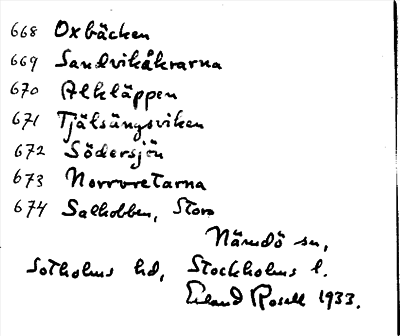 668 Oxbäcken
669 Sandvikåkrarna
670 Alkläppen
671 Tjälsängsviken
672 Södersjön
673 Norrvretarna
674 Salholmen, Stora
Nämdö sn,
Sotholms hd, Stockholms l.
Erland Rosell 1933.